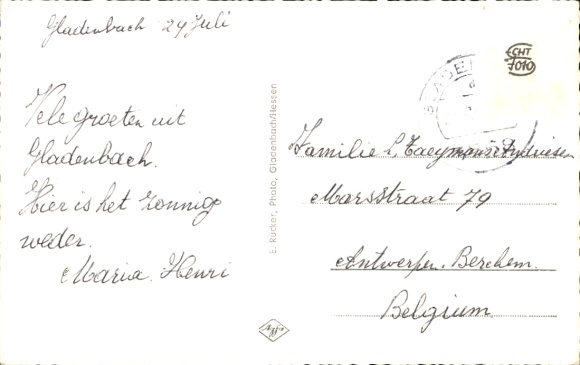 Gladenbach 24 Juli
Vele groeten uit
Gladenbach.
Hier is het zonnig
weder.
Maria. Henri
E. Rücker, Photo, Gladenbach/Hessen
Agfa
ECHT
7010
Familie L.
Marsstraat 79
Antwerpen. Berchem.
Belgium.